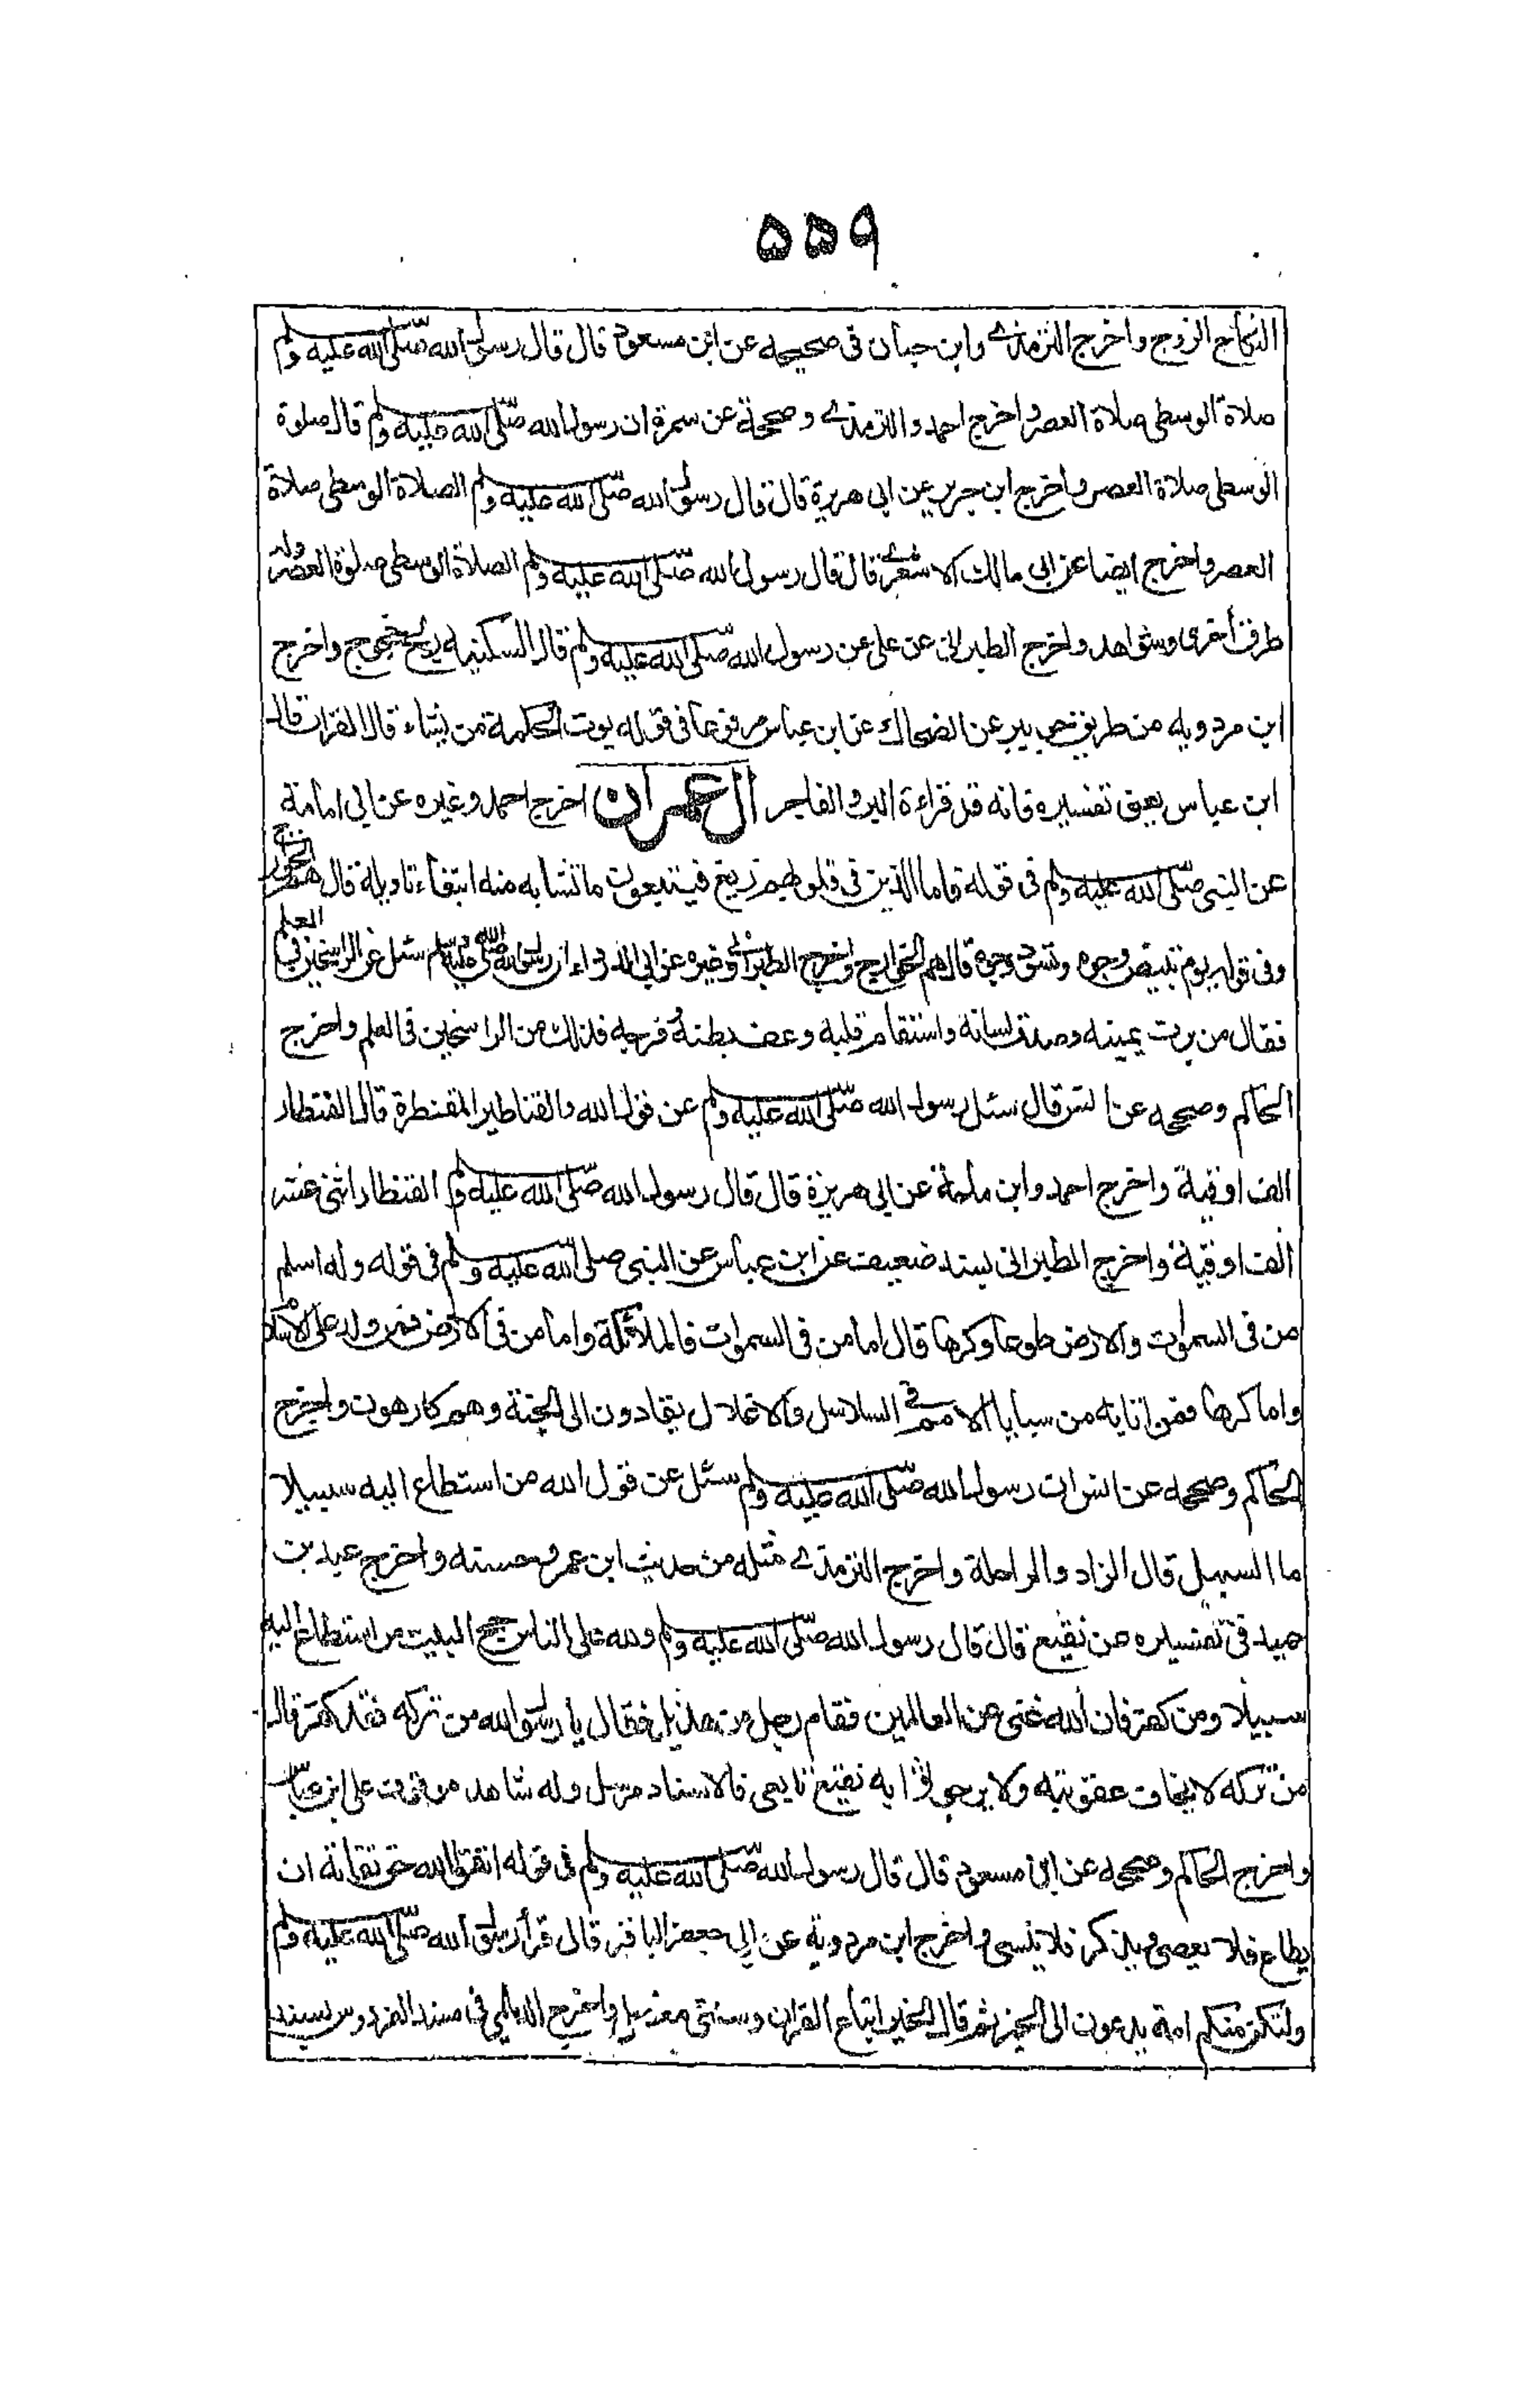 ۵۵۹
النكاح الزوج واخرج الترمذے وابن حبان فى صحيحه عن ابن مسعود قال قال رسول الله صلى الله عليه ولم
صلاة الوسطى صلاة العصر واخرج احمد والترمذے وصححه عن سمرة ان رسول الله صلى الله عليه ولم قال صلوة
الوسطى صلاة العصر واخرج ابن جرير عن ابى هريرة قال قال رسول الله صلى الله عليه ولم الصلاة الوسطى صلاة
العصر واخرج ايضا عن ابى مالك الاشعرے قال قال رسول الله صلى الله عليه ولم الصلاة الوسطى صلوة العصر وله
طرق أخرى وشواهد واخرج الطبرانى عن على عن رسول الله صلى الله عليه ولم قال السكينه ريح خجوج واخرج
ابن مردويه من طريق جويبر عن الضحاك عن ابن عباس مرفوعا فى قوله يوت الحكمة من يشاء قال القران قال
ابن عباس يعنى تفسيره فانه قد قراءة البر والفاجر ال عمران اخرج احمد وغيره عن ابى امامة
عن النبى صلى الله عليه ولم فى قوله فاما الذين فى قلوبهم زيغ فيتبعون ما تشابه منه ابتغاء تاويله قال هم الخوارج
وفى قوله يوم تبيض وجوه وتسود وجوه قال هم الخوارج واخرج الطبرانى وغيره عن ابى الدرداء ان رسول الله صلى الله عليه وسلم سئل عن الراسخين فى العلم
فقال من برت يمينه وصدق لسانه واستقام قلبه وعف بطنه وفرجه فذلك من الراسخين فى العلم واخرج
الحاكم وصححه عن انس قال سئل رسول الله صلى الله عليه ولم عن قول الله والقناطير المقنطرة قال القنطار
الف اوقية واخرج احمد وابن ماجة عن ابى هريرة قال قال رسول الله صلى الله عليه ولم القنطار اثنى عشر
الف اوقية واخرج الطبرانى بسند ضعيف عن ابن عباس عن النبى صلى الله عليه ولم فى قوله وله اسلم
من فى السموات والارض طوعا وكرها قال اما من فى السموات فالملائكة واما من فى الارض فمن ولد على الاسلام
واما كرها فمن اتا به من سبايا الامم فى السلاسل والاغلال يقادون الى الجنة وهم كارهون واخرج
الحاكم وصححه عن انس ان رسول الله صلى الله عليه ولم سئل عن قول الله من استطاع اليه سبيلا
ما السبيل قال الزاد والراحلة واخرج الترمذے مثله من حديث ابن عمر وحسنه واخرج عبد بن
حميد فى تفسيره عن نقيع قال قال رسول الله صلى الله عليه ولم ولله على الناس حج البيت من استطاع اليه
سبيلا ومن كفر فان الله غنى عن العالمين فقام رجل من هذيل فقال يا رسول الله من تركه فقد كفر قال
من تركه لا يخاف عقوبته ولا يرجو ثوابه نقيع تابعى فالاسناد مرسل وله شاهد موقوف على ابن عباس
واخرج الحاكم وصححه عن ابن مسعود قال قال رسول الله صلى الله عليه ولم فى قوله اتقوا الله حق تقاته ان
يطاع فلا يعصى ويذكر فلا ينسى واخرج ابن مردوية عن ابى جعفر الباقر قال قرأ رسول الله صلى الله عليه ولم
ولتكن منكم امة يدعون الى الخير ثم قال الخير اتباع القران وسنتى معضل واخرج الديلمي فى مسند الفردوس بسند